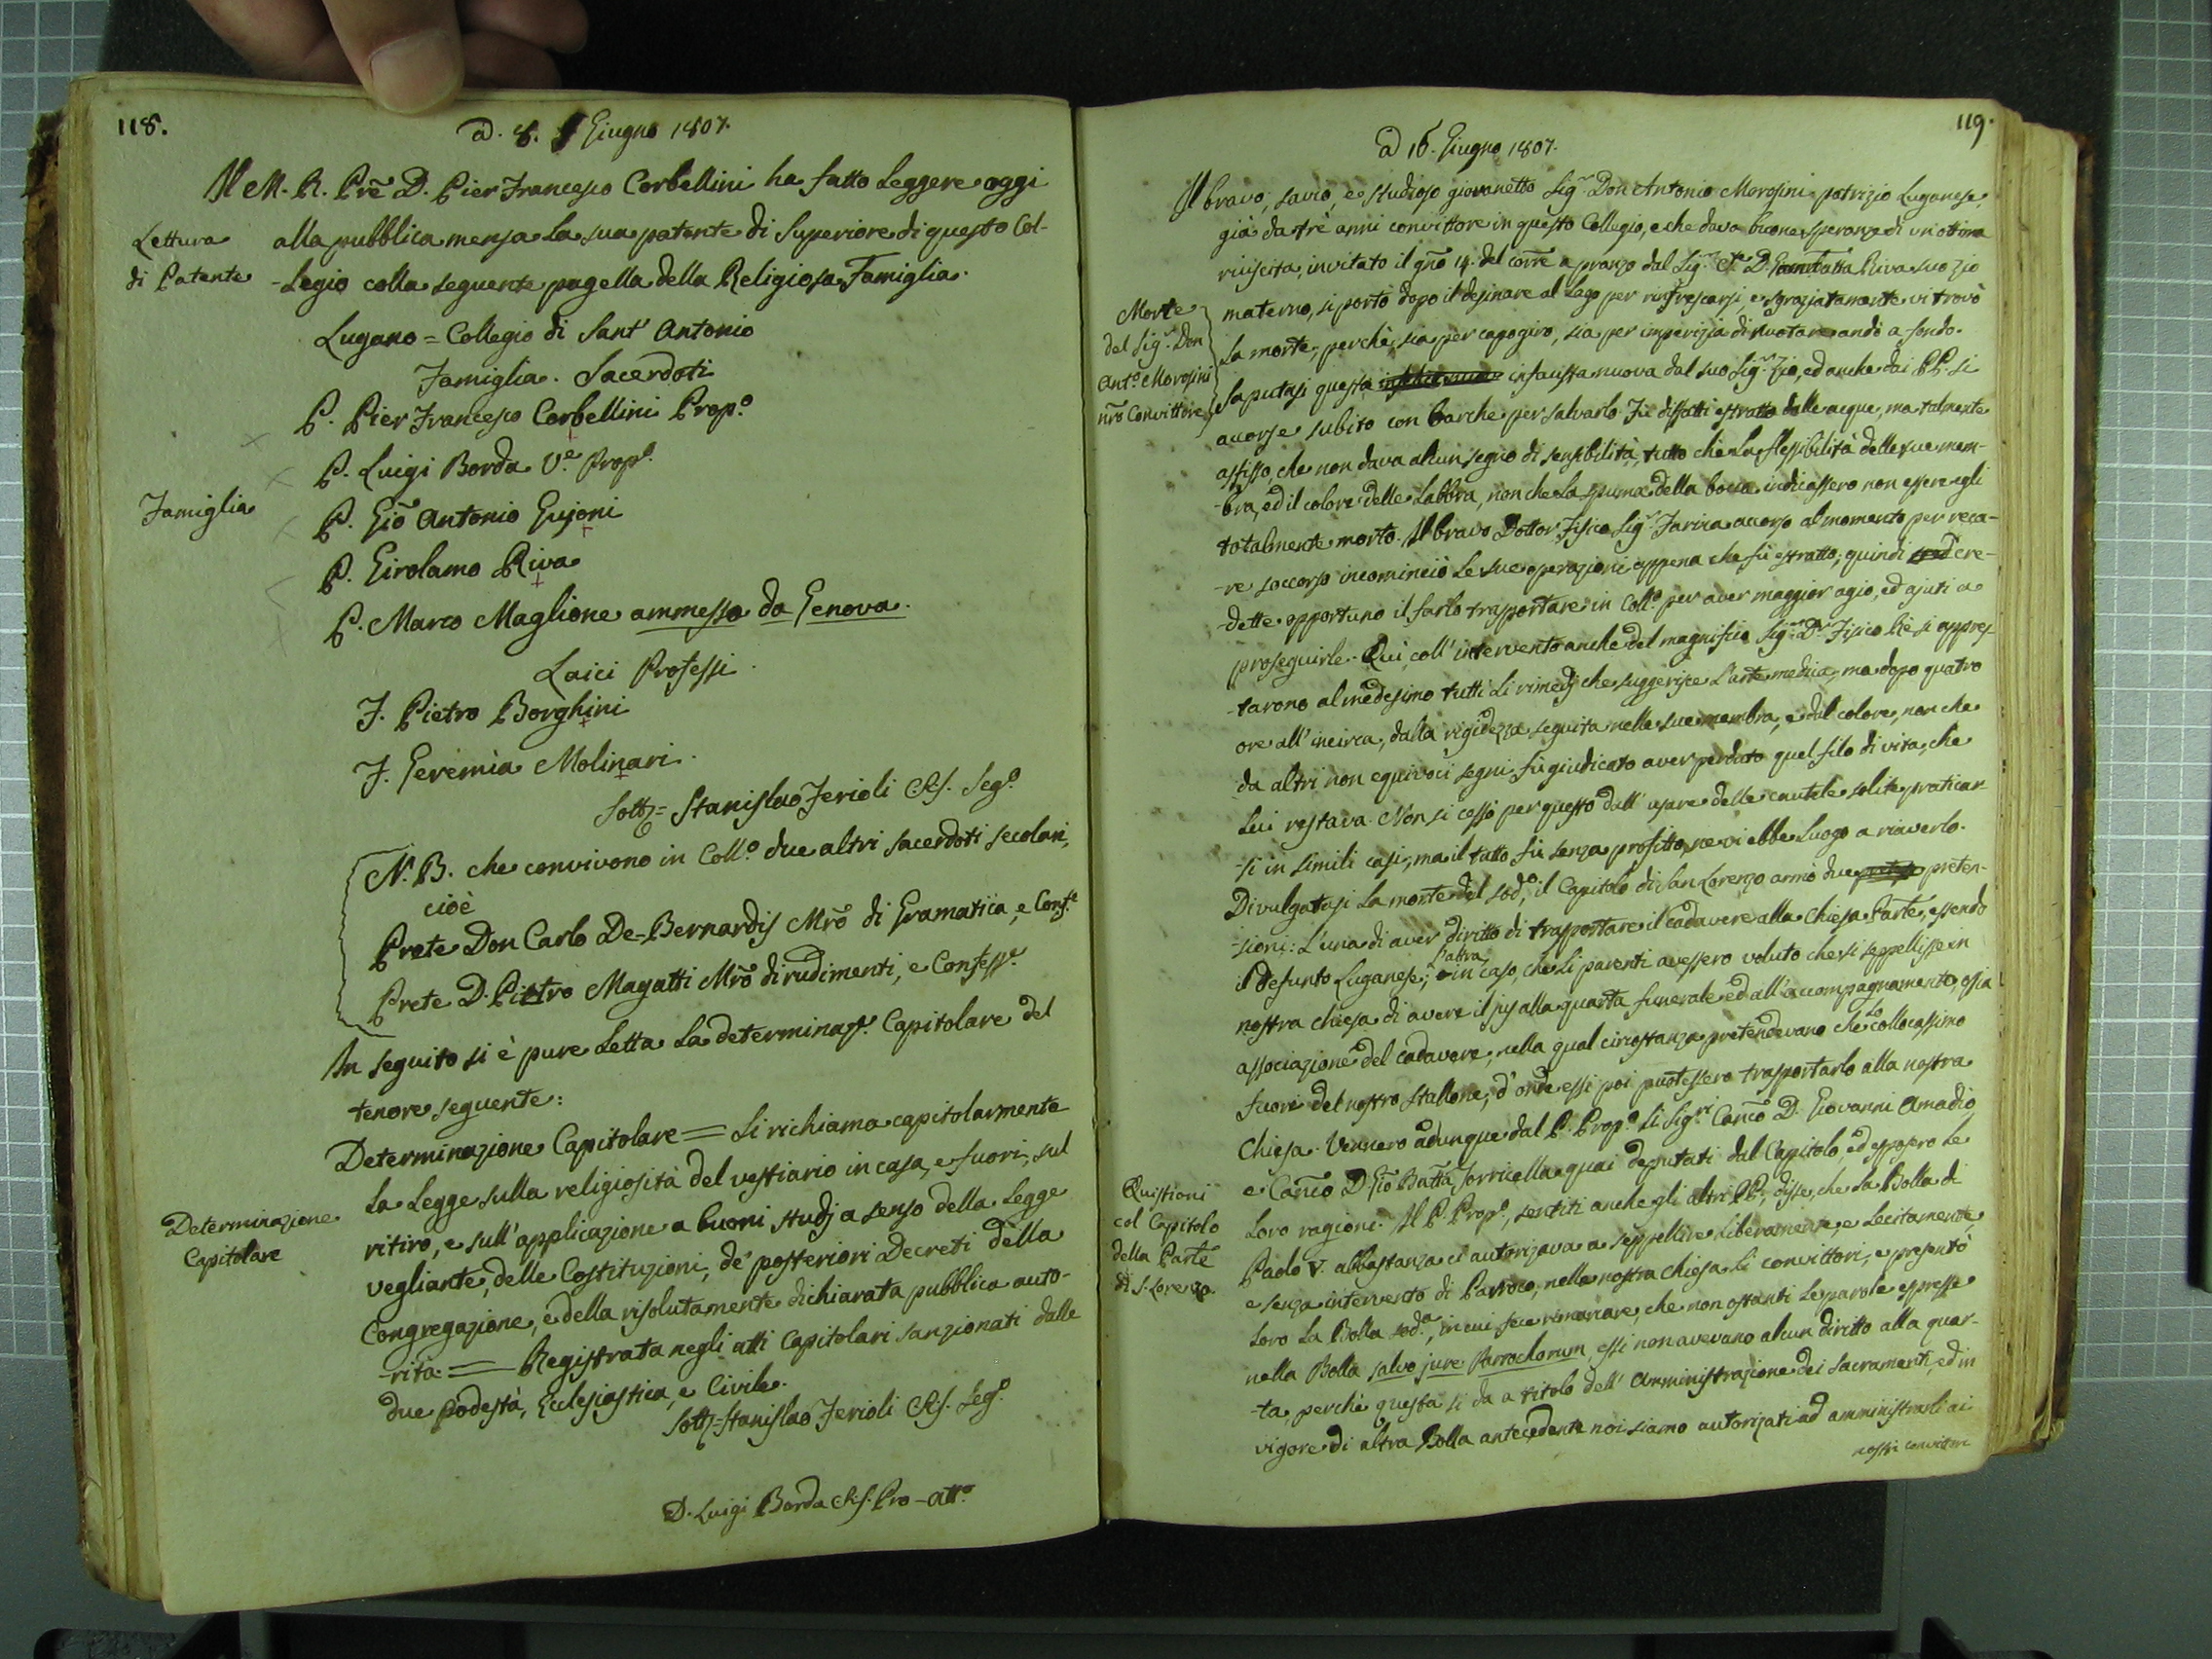 118.
a. 8. Giugno 1807.
Il M. R. Prē D. Pier Francesco Corbellini ha fatto Leggere oggi
Lettura
di Patente
alla pubblica mensa La sua patente di Superiore di questo Col-
-Legio colla seguente pagella della Religiosa Famiglia.
Lugano = Collegio di Sant' Antonio
Famiglia. Sacerdoti
P. Pier Francesco Corbellini Prop.o
P. Luigi Borda V.e Prop.o
Famiglia
P. Giō Antonio Gujoni
P. Girolamo Riva
P. Marco Maglione ammesso da Genova.
Laici Professi
F. Pietro Borghini
F. Geremia Molinari.
Sott.= Stanislao Ferioli CRS. Seg.o
N. B. che convivono in Coll.o due altri sacerdoti secolari,
cioè
Prete Don Carlo De-Bernardis Mrō di Gramatica, e Conf.e
Prete D. Pietro Magatti Mrō di rudimenti, e Confess.e
In seguito si è pure Letta La determinaz.e Capitolare del
tenore seguente:
Determinazione
Capitolare
Determinazione Capitolare = Si richiama capitolarmente
La Legge sulla religiosità del vestiario in casa, e fuori, sul
ritiro, e sull' applicazione a buoni studj a senso della Legge
vegliante, delle Costituzioni, de' posteriori Decreti della
Congregazione, e della risolutamente dichiarata pubblica auto-
-rità. = Registrata negli atti Capitolari sanzionati dalle
due Podestà, Ecclesiastica, e Civile.
Sott.= Stanislao Ferioli CRS. Seg.o
D. Luigi Borda CRS. Pro-Att.o
119.
a 16. Giugno 1807.
Il bravo, savio, e studioso giovanetto Sig.r Don Antonio Morosini patrizio Luganese,
già da trè anni convittore in questo Collegio, e che dava buone speranze di un' ottima
riuscita, invitato il gñō 14. del corrē a pranzo dal Sig.r D. Giambatta Riva suo zio
Morte
del Sig.r Don
Ant.o Morosini
nrō Convittore
materno, si portò dopo il desinare al Lago per rinfrescarsi, e sgraziatamente vi trovò
La morte, perchè, sia per capogiro, sia per imperizia di nuotare andò a fondo.
Saputasi questa infausta nuova dal suo Sig.r Zio, ed anche dai PP. si
accorse subito con barche per salvarlo. Fu diffatti estratto dalle acque, ma talmente
assisso, che non dava alcun segno di sensibilità, tutto chè La flessibilità delle sue mem-
-bra, ed il colore delle Labbra, non che La spuma della bocca indicassero non essere egli
totalmente morto. Il bravo Dottor Fisico Sig.r Farina accorso al momento per reca-
-re soccorso incominciò Le sue operazioni appena che fù estratto; quindi cre-
-dette opportuno il farlo trasportare in Coll.o per aver maggior agio, ed ajuti a
proseguirle. Quì, coll' intervento anche del magnifico Sig.r D.r Fisico Riè si appres-
-tarono al medesimo tutti Li rimedj che suggerisce L'arte medica, ma dopo quatro
ore all' incirca, dalla rigidezza seguita nelle sue membra, e dal colore, non che
da altri non equivoci segni fù giudicato aver perduto quel filo di vita, che
Lui restava. Non si cessò per questo dall' usare delle cautele solite praticar-
-si in simili casi, ma il tutto fù senza profitto, ne vi ebbe Luogo a riaverlo.
Divulgatasi La morte del sod.o, il Capitolo di San Lorenzo armò due preten-
-sioni: L'una di aver diritto di trasportare il cadavere alla Chiesa Parrē, essendo
il defunto Luganese; L'altra in caso, che Li parenti avessero voluto che si seppellisse in
nostra chiesa di avere il jus alla quarta funerale ed all' accompagnamento, ossia
associazione del cadavere, nella qual circostanza pretendevano che Lo collocassimo
fuori del nostro Stallone, d'onde essi poi puotessero trasportarlo alla nostra
Chiesa. Vennero adunque dal P. Prop.o Li Sig.ri Canco D. Giovanni Amadio,
Quistioni
col Capitolo
della Parrē
di S. Lorenzo
e Canco D. Giō Battā Torricella quai deputati dal Capitolo, ed esposero Le
Loro ragioni. Il P. Prop.o, sentiti anche gli altri PP., disse, che La Bolla di
Paolo V. abbastanza ci autorizava a seppellire Liberamente, e Lecitamente
e senza intervento di Parroco, nella nostra chiesa Li convittori, e presentò
Loro La Bolla sod.a, in cui fece rimarcare, che non ostanti Le parole espresse
nella Bolla salvo jure Parrochorum, essi non avevano alcun diritto alla quar-
-ta, perchè questa si da a titolo dell' Amministrazione dei Sacramenti, ed in
vigore di altra Bolla antecedente noi siamo autorizati ad amministrarli ai
nostri convittori